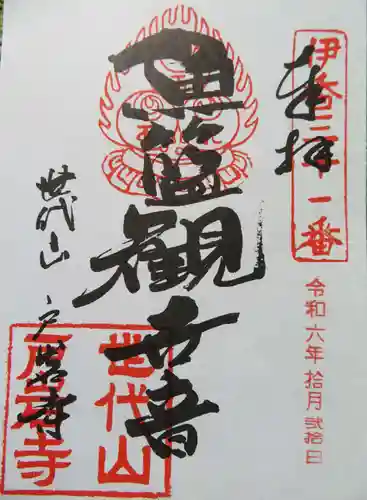 奉拝
伊香三十一番
令和六年拾月弐拾日
魚籃観世音
世代山
戸岩寺
世代山
戸岩寺